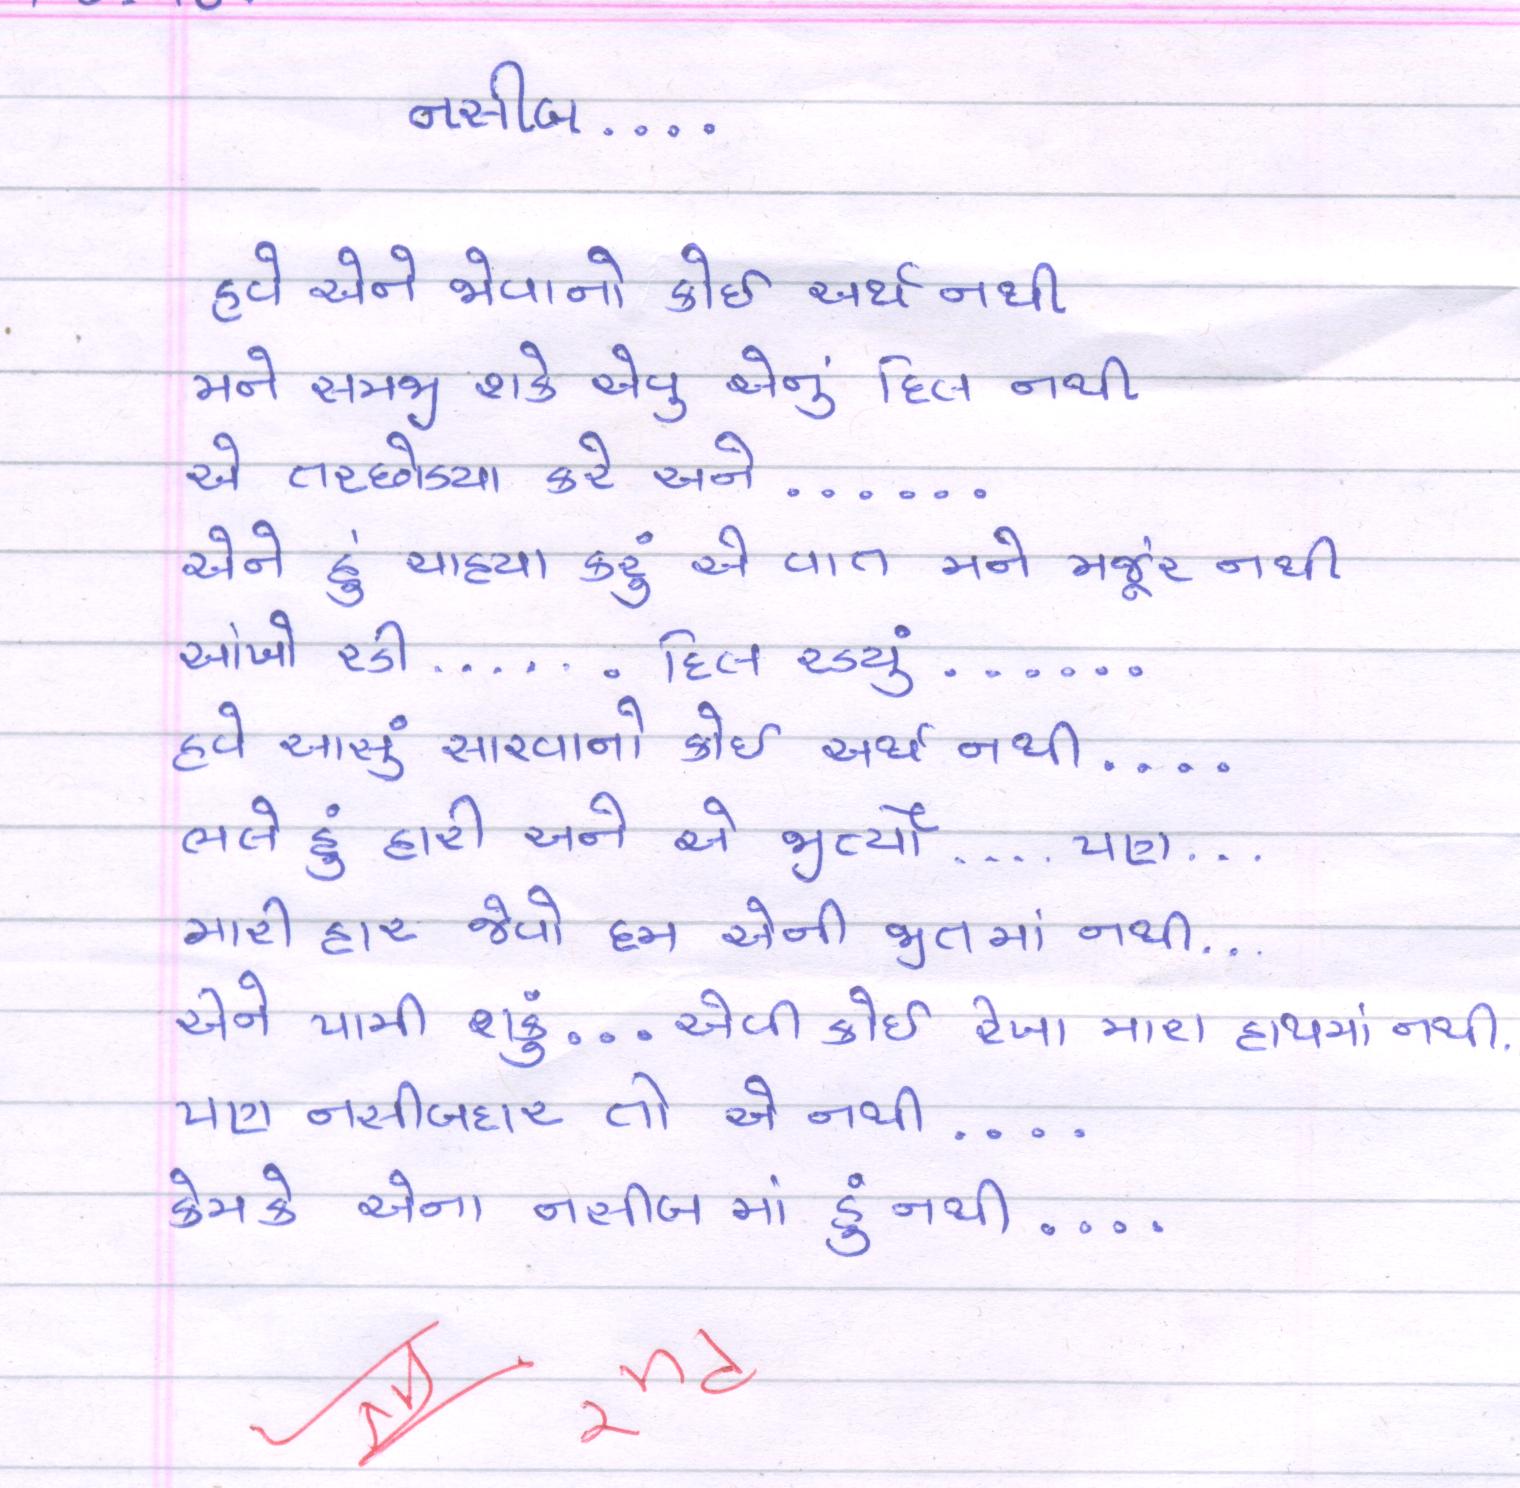 નસીબ....
હવે એને જોવાનો કોઈ અર્થ નથી
મને સમજી શકે એવુ એનું દિલ નથી
એ તરછોડ્યા કરે અને......
એને હું ચાહ્યા કરું એ વાત મને મજૂંર નથી
આંખો રડી....... દિલ રડ્યું......
હવે આસું સારવાનો કોઈ અર્થ નથી....
ભલે હું હારી અને એ જીત્યો.... પણ...
મારી હાર જેવો દમ એની જીતમાં નથી...
એને પામી શકું... એવી કોઈ રેખા મારા હાથમાં નથી.
પણ નસીબદાર તો એ નથી....
કેમકે એના નસીબ માં હું નથી....
2nd